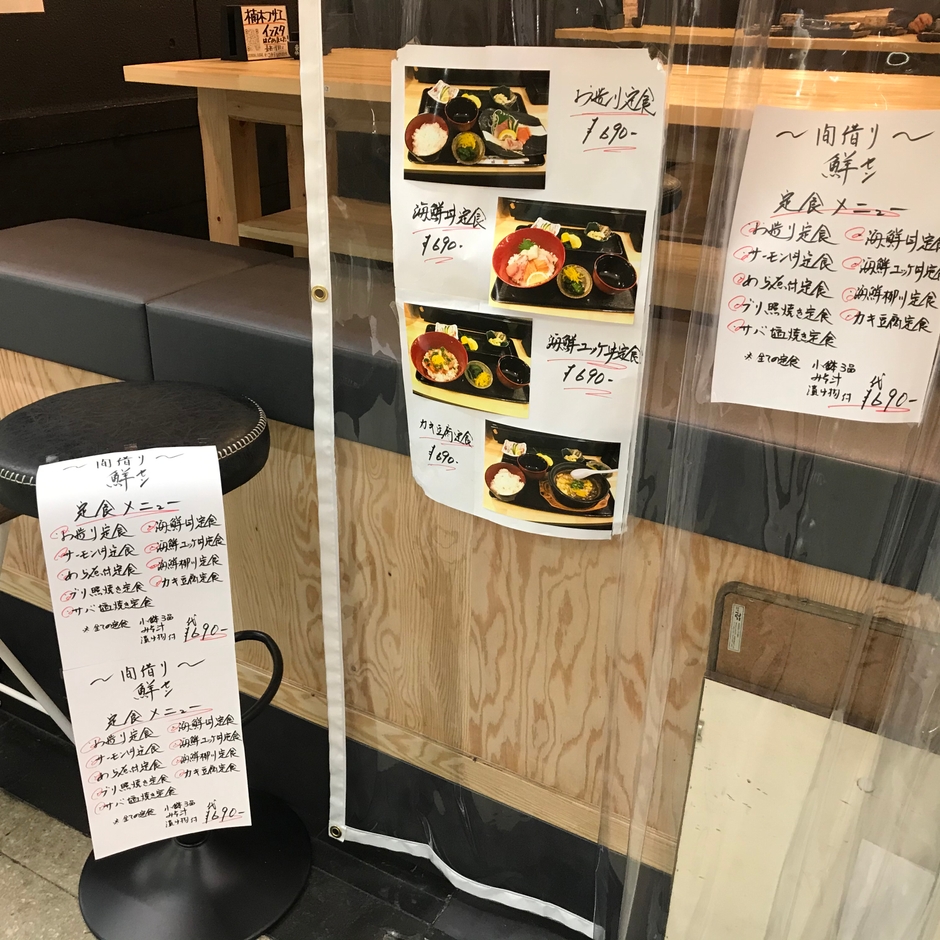 楠木フサエ
インスタ
はじめました!
お造り定食
¥690-
海鮮丼定食
¥690-
海鮮ユッケ丼定食
¥690-
カキ豆腐定食
¥690-
〜間借り〜
鮮セン
定食メニュー
お造り定食
サーモン丼定食
あら煮付定食
ブリ照焼き定食
サバ塩焼き定食
海鮮丼定食
海鮮ユッケ丼定食
海鮮柳川定食
カキ豆腐定食
※全ての定食 小鉢3品
みそ汁
漬け物付
代
¥690-
〜間借り〜
鮮セン
定食メニュー
お造り定食
サーモン丼定食
あら煮付定食
ブリ照焼き定食
サバ塩焼き定食
海鮮丼定食
海鮮ユッケ丼定食
海鮮柳川定食
カキ豆腐定食
※全ての定食 小鉢3品
みそ汁
漬け物付
代
¥690-
〜間借り〜
鮮セン
定食メニュー
お造り定食
サーモン丼定食
あら煮付定食
ブリ照焼き定食
サバ塩焼き定食
海鮮丼定食
海鮮ユッケ丼定食
海鮮柳川定食
カキ豆腐定食
※全ての定食 小鉢3品
みそ汁
漬け物付
代
¥690-